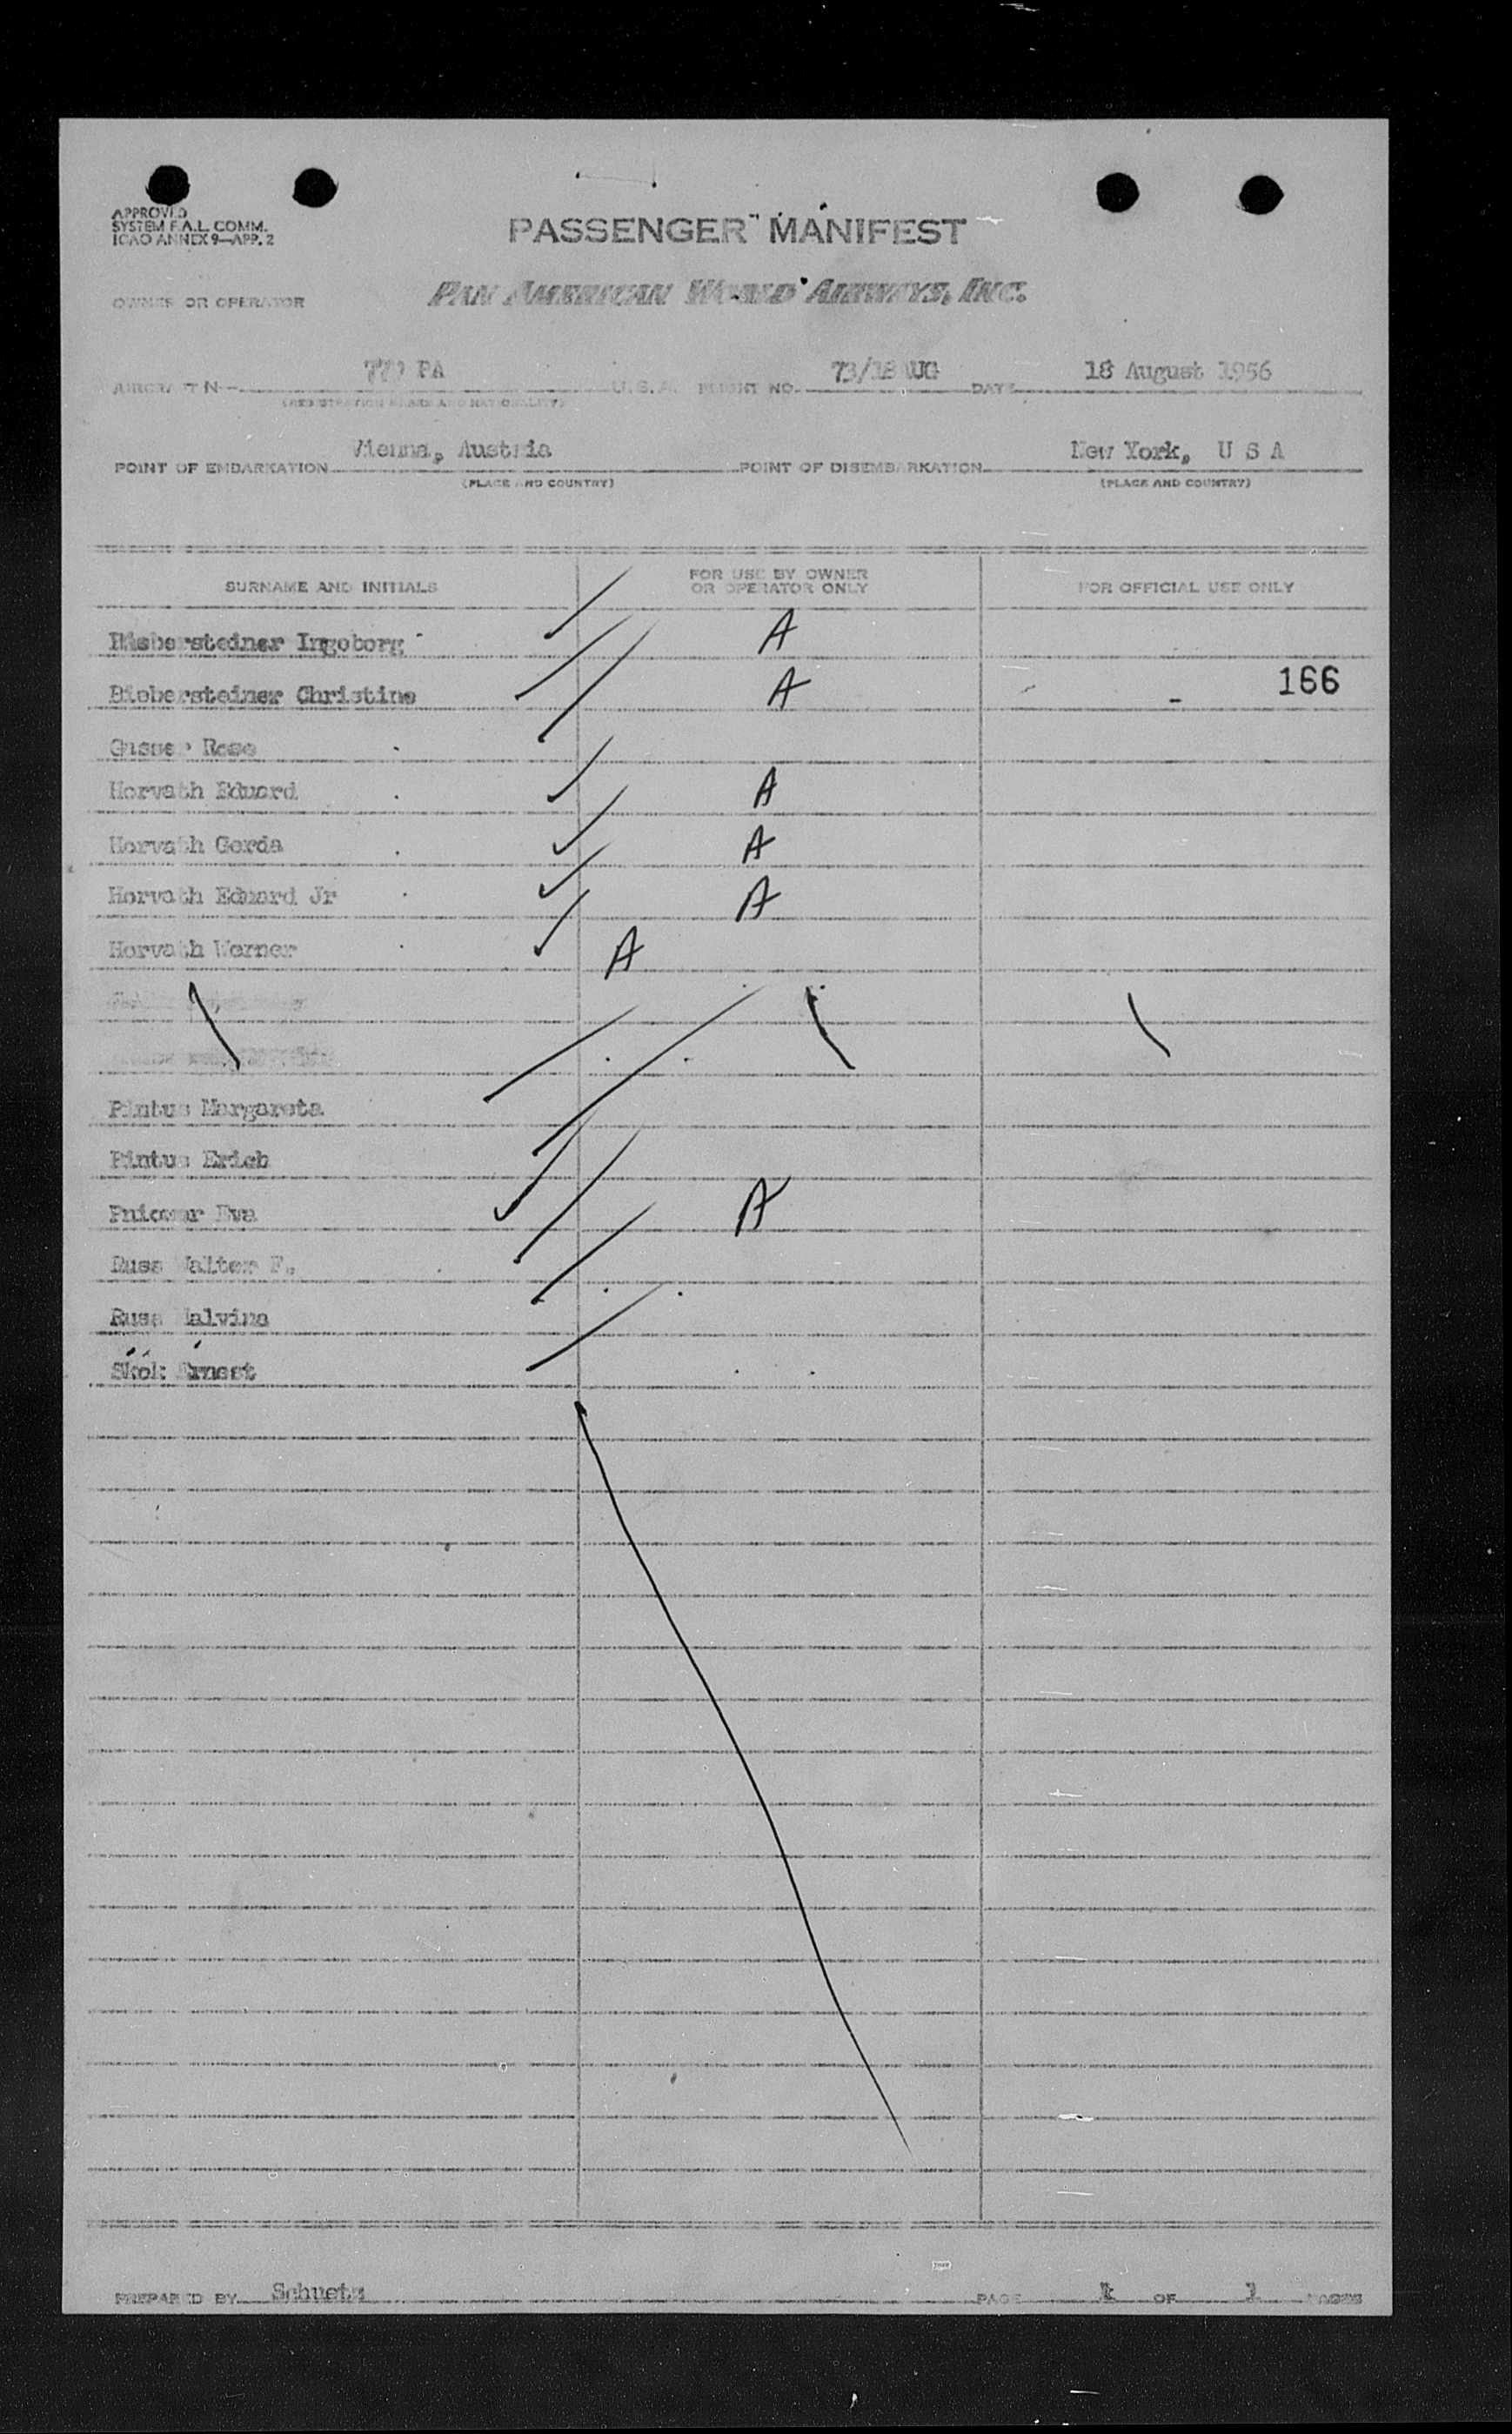 APPROVED
SYSTEM F.A.L. COMM.
ICAO ANNEX 9—APP. 2
PASSENGER MANIFEST
OWNER OR OPERATOR PAN AMERICAN WORLD AIRWAYS, INC.
AIRCRAFT N— PA U.S.A. FLIGHT NO. 73/18AUG DATE 18 August 1956
(REGISTRATION MARKS AND NATIONALITY)
POINT OF EMBARKATION Vienna, Austria POINT OF DISEMBARKATION New York, U S A
(PLACE AND COUNTRY) (PLACE AND COUNTRY)
SURNAME AND INITIALS FOR USE BY OWNER OR OPERATOR ONLY FOR OFFICIAL USE ONLY
Biebersteiner Ingeborg A
Biebersteiner Christine A 166
Gusser Rose
Horvath Eduard A
Horvath Gerda A
Horvath Eduard Jr A
Horvath Werner A
Pintus Margareta
Pintus Erich
Pniower Eva A
Russ Walter F.
Russ Malvina
Skok Ernest
PREPARED BY Schuetz PAGE 1 OF 1 PAGES